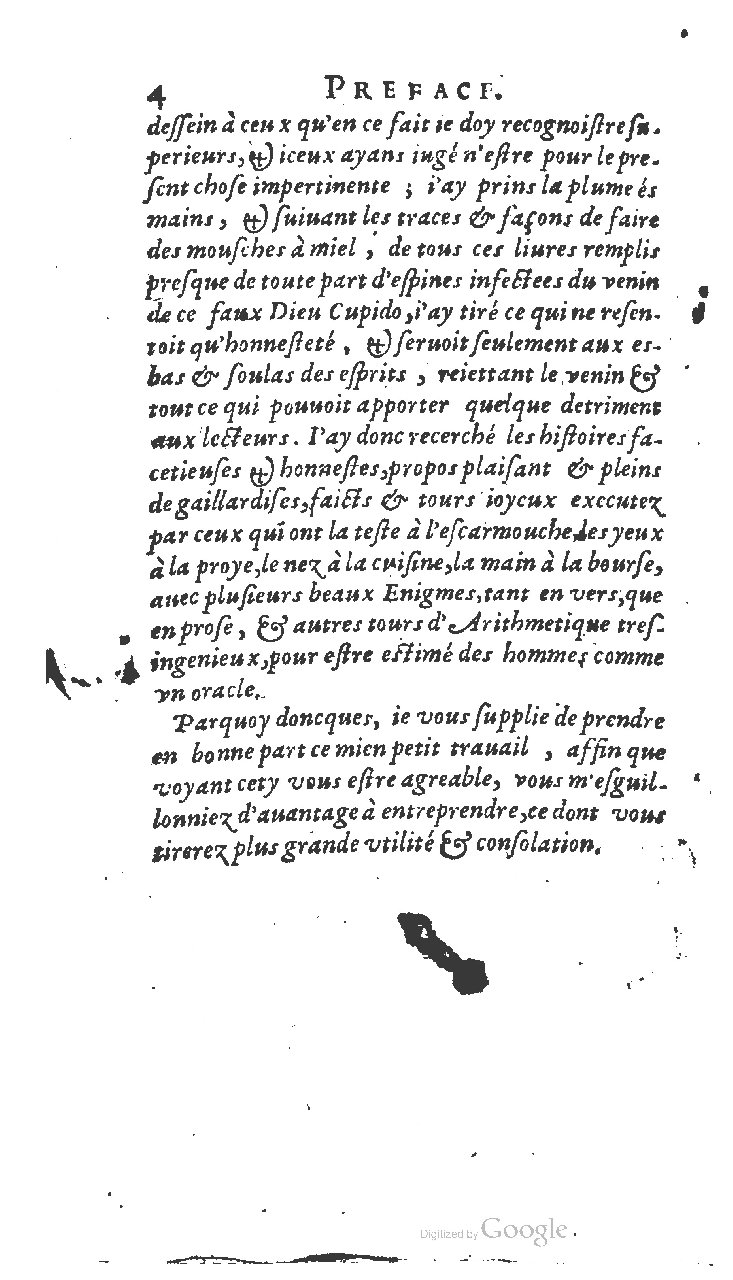 4 PREFACE.
deſſein à ceux qu'en ce fait ie doy recognoiſtre ſu-
perieurs, & iceux ayans iugé n'eſtre pour le pre-
ſent choſe impertinente ; i'ay prins la plume és
mains , & ſuiuant les traces & façons de faire
des mouſches à miel , de tous ces liures remplis
preſque de toute part d'eſpines infectees du venin
de ce faux Dieu Cupido ,i'ay tiré ce qui ne reſen-
toit qu'honneſteté , & ſeruoit ſeulement aux es-
bas & ſoulas des eſprits , reiettant le venin &
tout ce qui pouuoit apporter quelque detriment
aux lecteurs. I'ay donc recerché les hiſtoires fa-
cetieuſes & honneſtes,propos plaiſant & pleins
de gaillardiſes,faicts & tours ioyeux executez
par ceux qui ont la teſte à l'eſcarmouche,les yeux
à la proye,le nez à la cuiſine,la main à la bourſe,
auec pluſieurs beaux Enigmes,tant en vers,que
en proſe , & autres tours d'Arithmetique treſ-
ingenieux,pour eſtre eſtimé des hommes comme
vn oracle.
Parquoy doncques, ie vous ſupplie de prendre
en bonne part ce mien petit trauail , affin que
voyant cety vous eſtre agreable, vous m'eſguil-
lonniez d'auantage à entreprendre,ce dont vous
tirerez plus grande vtilité & conſolation.
Digitized by Google